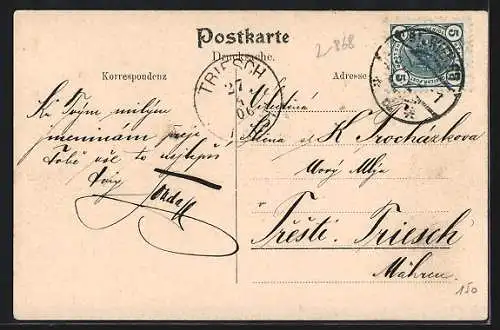 Postkarte
Drucksache.
2-868
Korrespondenz
Adresse
TRIESCH
27
4
06
5
5
1
K Tvým milým
jmeninám přeje
Tobě vše to nejlepší
Tvůj
Slečna
K Procházkova
Nový Mlýn
Třešti. Triesch
Mähren.
150